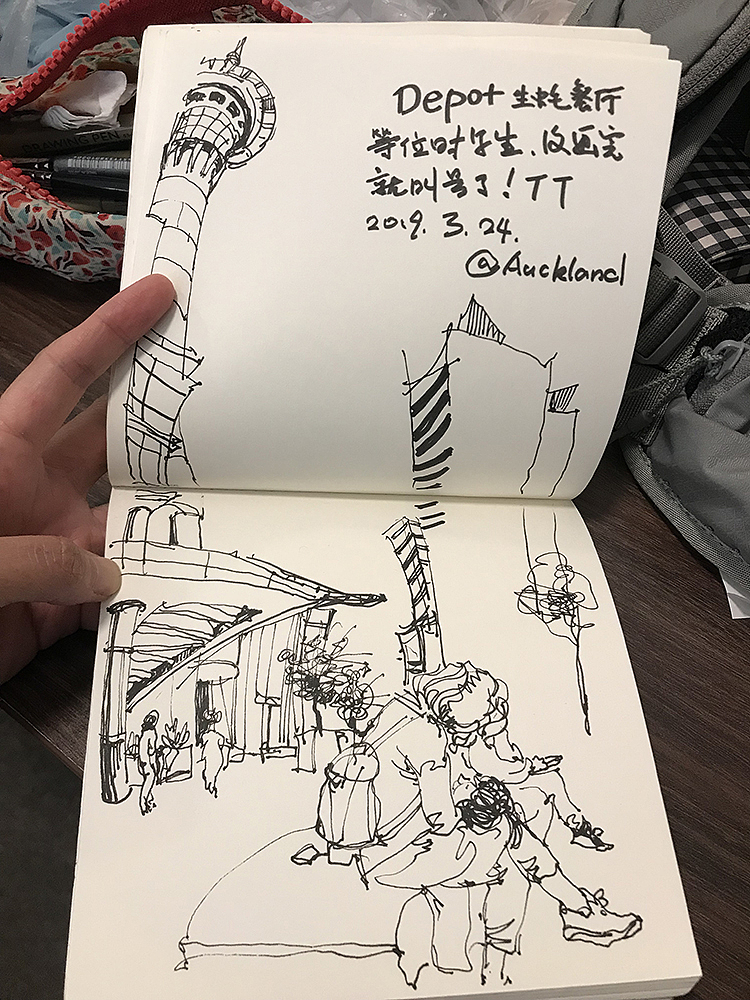 Depot 生蚝餐厅
等位时写生、没画完
就叫号了！TT
2019. 3. 24.
@Auckland
DRAWING PEN